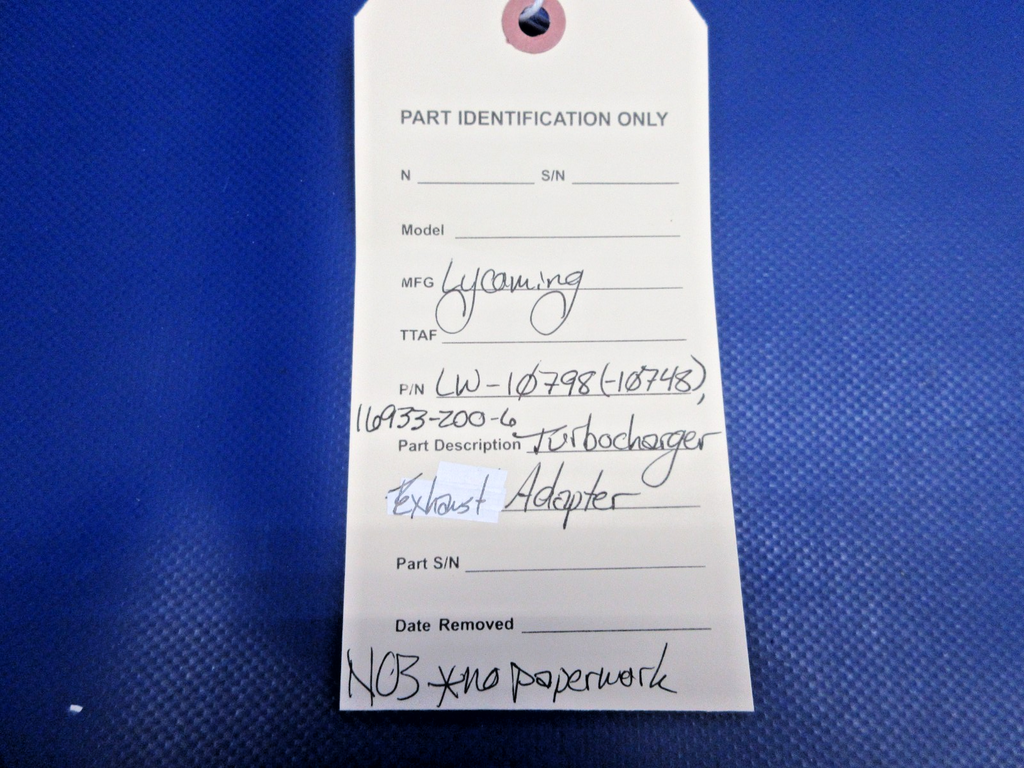 PART IDENTIFICATION ONLY
N S/N
Model
MFG Lycoming
TTAF
P/N LW-10798(-10748),
16933-200-6
Part Description Turbocharger
Exhaust Adapter
Part S/N
Date Removed
NOB *no paperwork